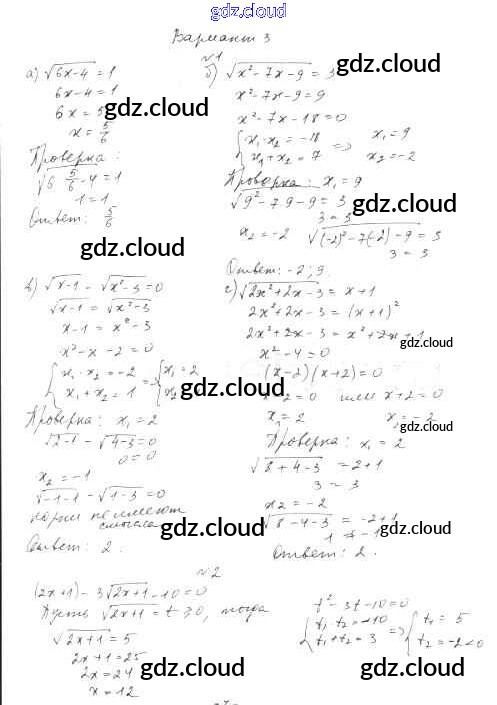 gdz.cloud
Вариант 3
№1
а) √(6x-4) = 1
6x-4 = 1
6x = 5
x = 5/6
Проверка:
√(6·5/6-4) = 1
1 = 1
Ответ: 5/6
б) √(x²-7x-9) = 3
x²-7x-9 = 9
x²-7x-18 = 0
{x₁·x₂ = -18
{x₁+x₂ = 7 => x₁ = 9
x₂ = -2
Проверка: x₁ = 9
√(9²-7·9-9) = 3
3 = 3
x₂ = -2 √((-2)²-7(-2)-9) = 3
3 = 3
Ответ: -2; 9.
в) √(x-1) - √(x²-3) = 0
√(x-1) = √(x²-3)
x-1 = x²-3
x²-x-2 = 0
{x₁·x₂ = -2
{x₁+x₂ = 1 => {x₁ = 2
{x₂
Проверка: x₁ = 2
√(2-1) - √(4-3) = 0
0 = 0
x₂ = -1
√(-1-1) - √(1-3) = 0
корни не имеют
смысла
Ответ: 2.
г) √(2x²+2x-3) = x+1
2x²+2x-3 = (x+1)²
2x²+2x-3 = x²+2x+1
x²-4 = 0
(x-2)(x+2) = 0
x-2 = 0 или x+2 = 0
x₁ = 2 x₂ = -2
Проверка: x₁ = 2
√(8+4-3) = 2+1
3 = 3
x₂ = -2
√(8-4-3) = -2+1
1 ≠ -1
Ответ: 2.
№2
(2x+1) - 3√(2x+1) - 10 = 0
Пусть √(2x+1) = t ≥ 0, тогда
t²-3t-10 = 0
{t₁·t₂ = -10
{t₁+t₂ = 3 => {t₁ = 5
{t₂ = -2 < 0
√(2x+1) = 5
2x+1 = 25
2x = 24
x = 12
gdz.cloud
gdz.cloud
gdz.cloud
gdz.cloud
gdz.cloud
gdz.cloud
gdz.cloud
gdz.cloud
gdz.cloud
gdz.cloud
gdz.cloud
gdz.cloud